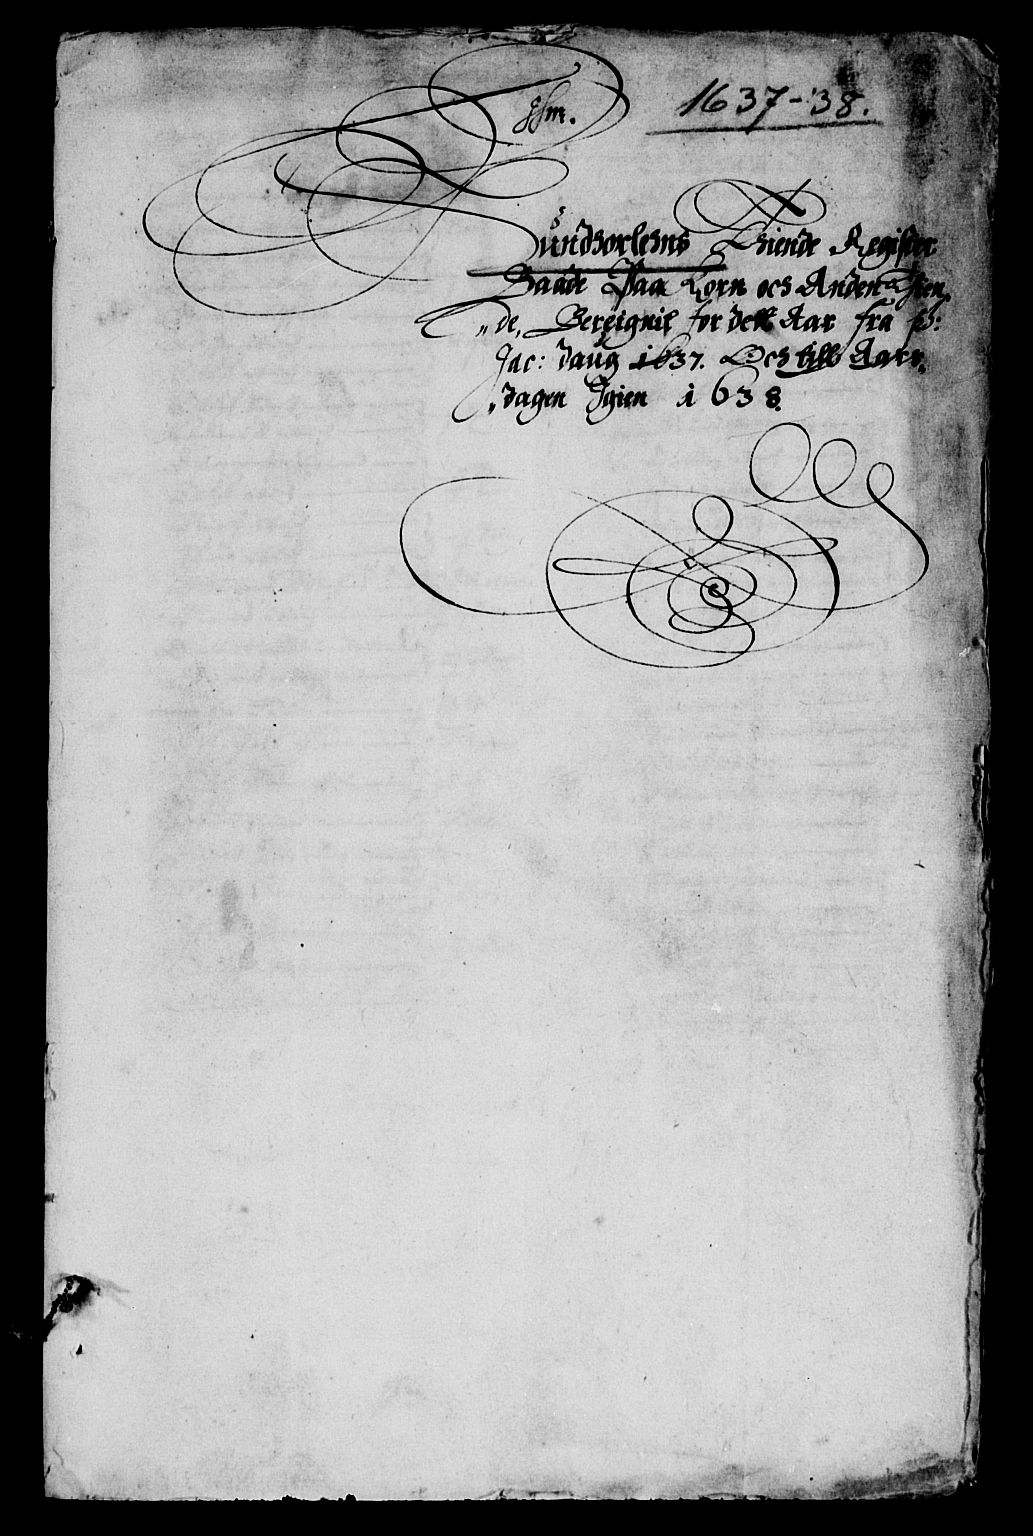 1637-38.
Sundhorlehns Thiende Register
Baade Paa Korn och Anden Thien
de, Bereignit for dett Aar fra S:
Jac: daug 1637. Och till Aars
dagen Igien 1638.